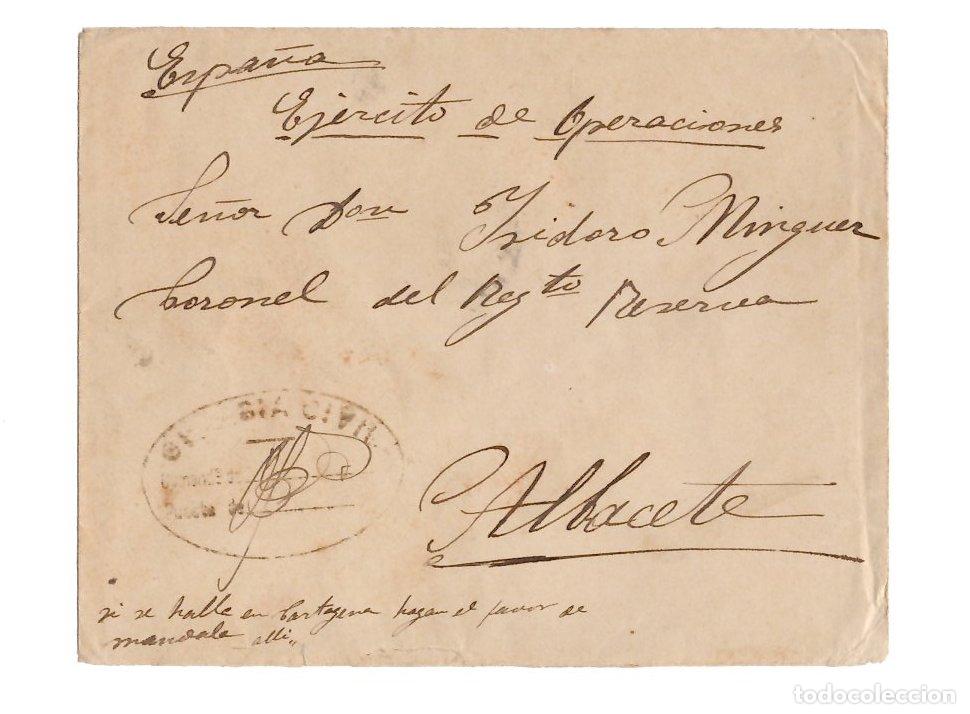 España
Ejército de Operaciones
Señor Don Isidoro Minguer
Coronel del Regto Reserva
GUARDIA CIVIL
Albacete
si se halle en Cartagena hagan el favor de
mandala alli
todocoleccion